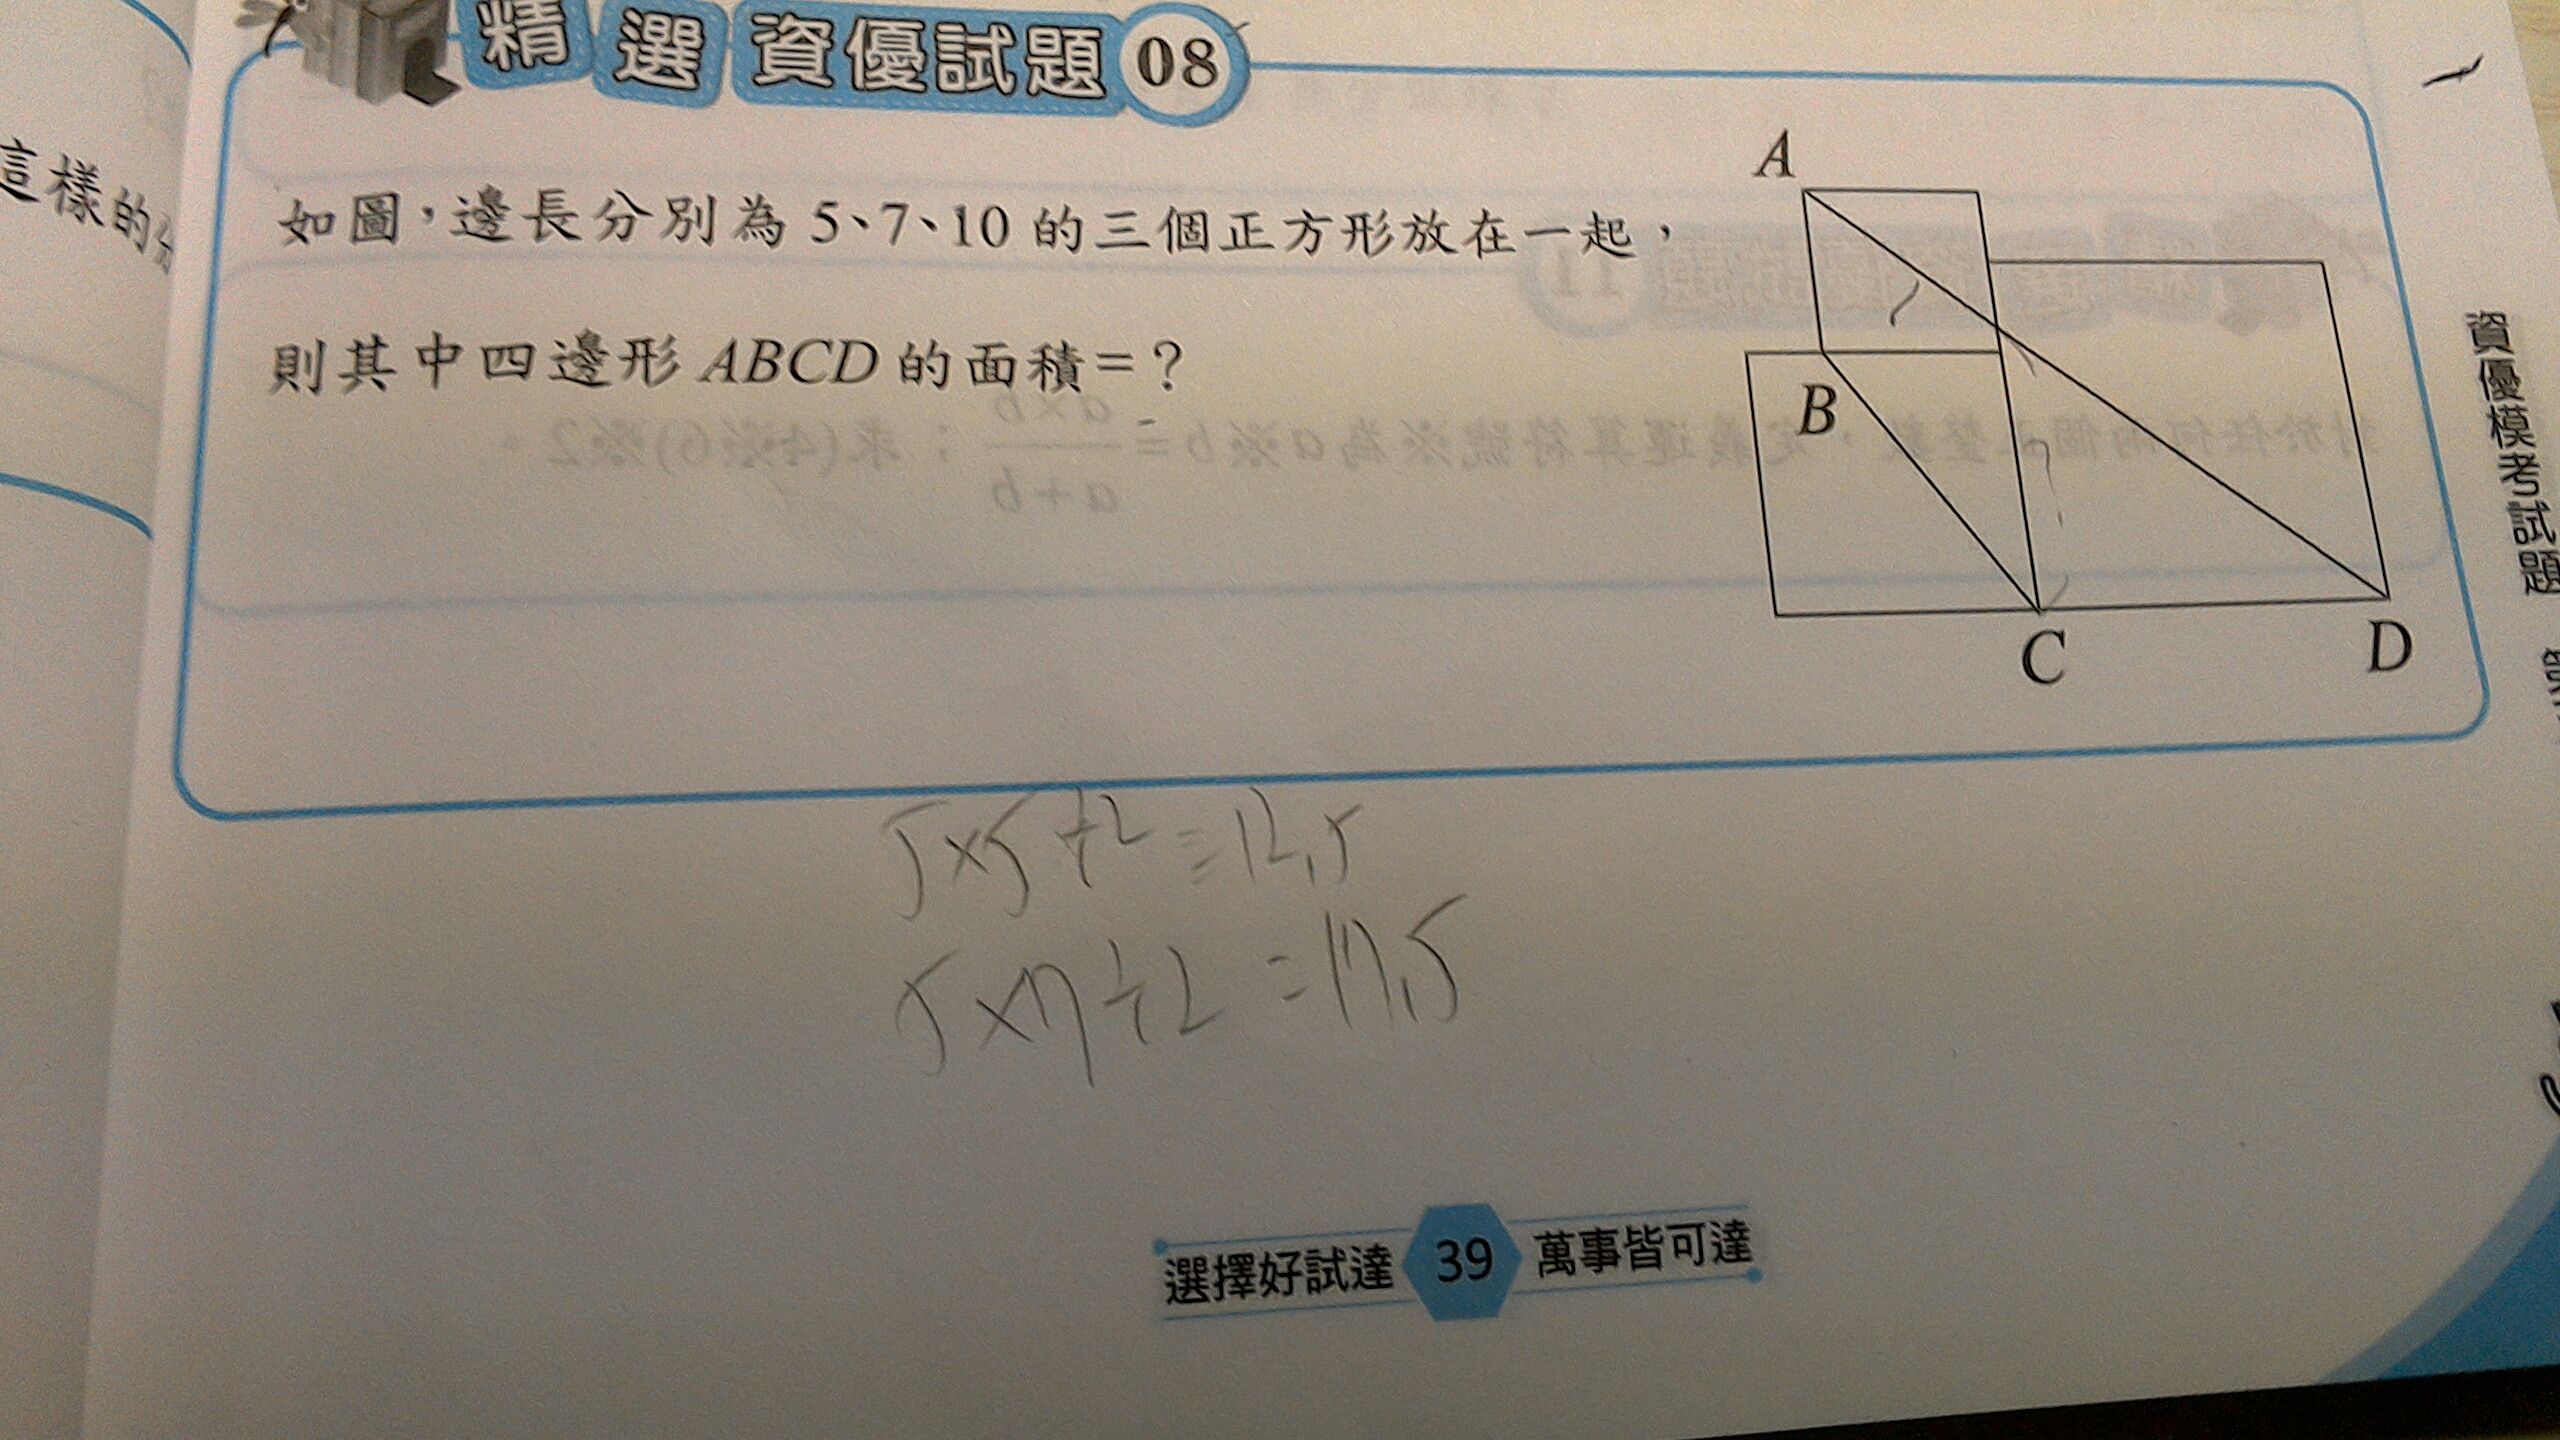 精選資優試題 08
這樣的
如圖，邊長分別為 5、7、10 的三個正方形放在一起，
則其中四邊形 ABCD 的面積=？
A
B
C
D
資優模考試題
5×5÷2=12.5
5×7÷2=17.5
選擇好試達 39 萬事皆可達